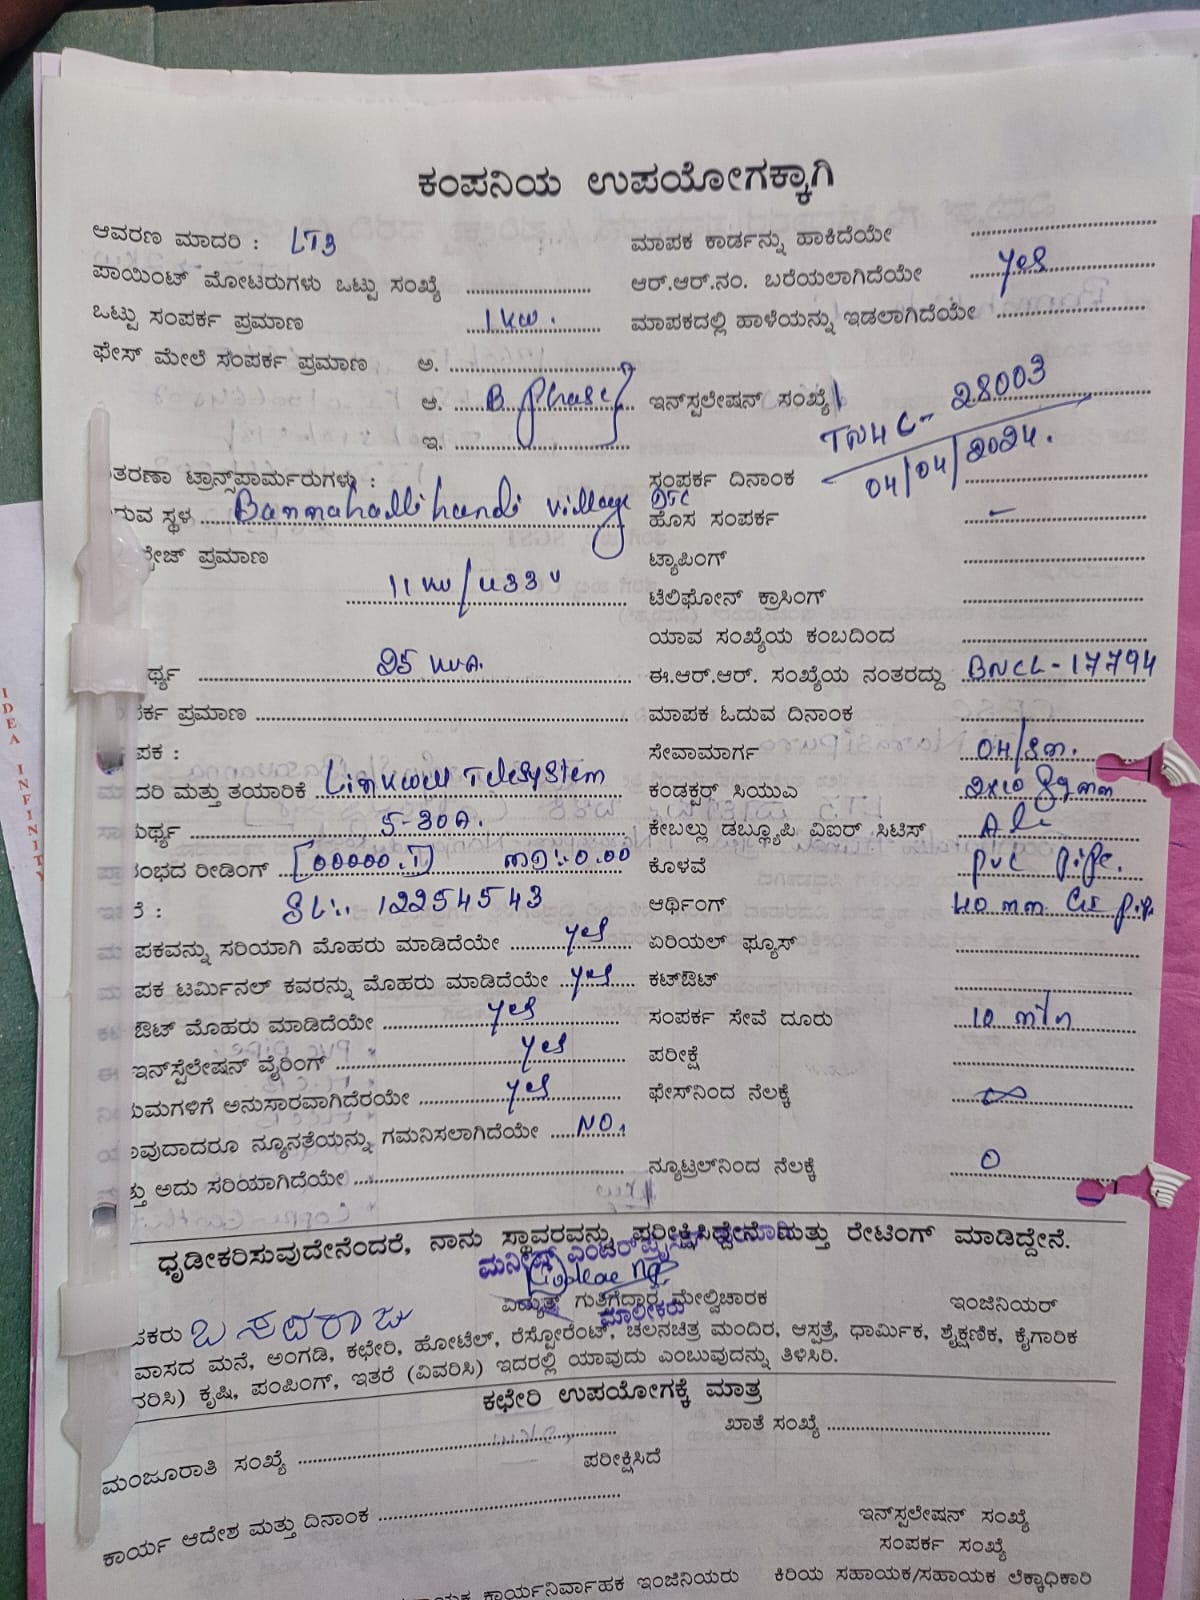 ಕಂಪನಿಯ ಉಪಯೋಗಕ್ಕಾಗಿ
ಆವರಣ ಮಾದರಿ : LT3
ಪಾಯಿಂಟ್ ಮೋಟರುಗಳು ಒಟ್ಟು ಸಂಖ್ಯೆ
ಒಟ್ಟು ಸಂಪರ್ಕ ಪ್ರಮಾಣ 1 KW.
ಫೇಸ್ ಮೇಲೆ ಸಂಪರ್ಕ ಪ್ರಮಾಣ ಅ.
ಆ. B phase
ಇ.
ತರಣಾ ಟ್ರಾನ್ಸ್‌ಪಾರ್ಮರುಗಳು :
ರುವ ಸ್ಥಳ Bannahallihundi village DTC
ಟೇಜ್ ಪ್ರಮಾಣ
11 KV/433 V
ರ್ಥ್ಯ 25 KVA.
ರ್ಕ ಪ್ರಮಾಣ
ಪಕ :
ದರಿ ಮತ್ತು ತಯಾರಿಕೆ Linkwell Telesystem
ರ್ಥ್ಯ 5-30A.
ರಂಭದ ರೀಡಿಂಗ್ [00000.1] MD:-0.00
ರೆ : SL:. 12254543
ಪಕವನ್ನು ಸರಿಯಾಗಿ ಮೊಹರು ಮಾಡಿದೆಯೇ yes
ಪಕ ಟರ್ಮಿನಲ್ ಕವರನ್ನು ಮೊಹರು ಮಾಡಿದೆಯೇ yes
ಔಟ್ ಮೊಹರು ಮಾಡಿದೆಯೇ yes
ಇನ್‌ಸ್ಪೆಲೇಷನ್ ವೈರಿಂಗ್ yes
ಯಮಗಳಿಗೆ ಅನುಸಾರವಾಗಿದೆರಯೇ yes
ಾವುದಾದರೂ ನ್ಯೂನತೆಯನ್ನು ಗಮನಿಸಲಾಗಿದೆಯೇ NO.
ತ್ತು ಅದು ಸರಿಯಾಗಿದೆಯೇ
ಮಾಪಕ ಕಾರ್ಡನ್ನು ಹಾಕಿದೆಯೇ
ಆರ್.ಆರ್.ನಂ. ಬರೆಯಲಾಗಿದೆಯೇ yes
ಮಾಪಕದಲ್ಲಿ ಹಾಳೆಯನ್ನು ಇಡಲಾಗಿದೆಯೇ
ಇನ್‌ಸ್ಪಲೇಷನ್ ಸಂಖ್ಯೆ TNHC-28003
ಸಂಪರ್ಕ ದಿನಾಂಕ 04/04/2024.
ಹೊಸ ಸಂಪರ್ಕ -
ಟ್ಯಾಪಿಂಗ್
ಟೆಲಿಫೋನ್ ಕ್ರಾಸಿಂಗ್
ಯಾವ ಸಂಖ್ಯೆಯ ಕಂಬದಿಂದ
ಈ.ಆರ್.ಆರ್. ಸಂಖ್ಯೆಯ ನಂತರದ್ದು BNCL-17794
ಮಾಪಕ ಓದುವ ದಿನಾಂಕ
ಸೇವಾಮಾರ್ಗ
ಕಂಡಕ್ಟರ್ ಸಿಯುಎ
ಕೇಬಲ್ಲು ಡಬ್ಲ್ಯೂಪಿ ವಿಐರ್ ಸಿಟಿಸ್
ಕೊಳವೆ PVC pipe.
ಆರ್ಥಿಂಗ್
ಏರಿಯಲ್ ಫ್ಯೂಸ್
ಕಟ್‌ಔಟ್
ಸಂಪರ್ಕ ಸೇವೆ ದೂರು
ಪರೀಕ್ಷೆ
ಫೇಸ್‌ನಿಂದ ನೆಲಕ್ಕೆ ∞
ನ್ಯೂಟ್ರಲ್‌ನಿಂದ ನೆಲಕ್ಕೆ 0
ಧೃಡೀಕರಿಸುವುದೇನೆಂದರೆ, ನಾನು ಸ್ಥಾವರವನ್ನು ಪರೀಕ್ಷಿಸಿದ್ದೇನೆ ಮತ್ತು ರೇಟಿಂಗ್ ಮಾಡಿದ್ದೇನೆ.
ಎಂಟರ್‌ಪ್ರೈಸಸ್
ವಿದ್ಯುತ್ ಗುತ್ತಿಗೆದಾರ ಮೇಲ್ವಿಚಾರಕ ಇಂಜಿನಿಯರ್
ಮಾಲೀಕರು
ಕರು ಬಸವರಾಜು
ವಾಸದ ಮನೆ, ಅಂಗಡಿ, ಕಛೇರಿ, ಹೋಟೆಲ್, ರೆಸ್ಟೋರೆಂಟ್, ಚಲನಚಿತ್ರ ಮಂದಿರ, ಆಸ್ಪತ್ರೆ, ಧಾರ್ಮಿಕ, ಶೈಕ್ಷಣಿಕ, ಕೈಗಾರಿಕ
ವರಿಸಿ) ಕೃಷಿ, ಪಂಪಿಂಗ್, ಇತರೆ (ವಿವರಿಸಿ) ಇದರಲ್ಲಿ ಯಾವುದು ಎಂಬುವುದನ್ನು ತಿಳಿಸಿರಿ.
ಕಛೇರಿ ಉಪಯೋಗಕ್ಕೆ ಮಾತ್ರ
ಮಂಜೂರಾತಿ ಸಂಖ್ಯೆ ಖಾತೆ ಸಂಖ್ಯೆ
ಪರೀಕ್ಷಿಸಿದೆ
ಕಾರ್ಯ ಆದೇಶ ಮತ್ತು ದಿನಾಂಕ
ಇನ್‌ಸ್ಪಲೇಷನ್ ಸಂಖ್ಯೆ
ಸಂಪರ್ಕ ಸಂಖ್ಯೆ
ಯಕ ಕಾರ್ಯನಿರ್ವಾಹಕ ಇಂಜಿನಿಯರು ಕಿರಿಯ ಸಹಾಯಕ/ಸಹಾಯಕ ಲೆಕ್ಕಾಧಿಕಾರಿ
IDEA INFINITY